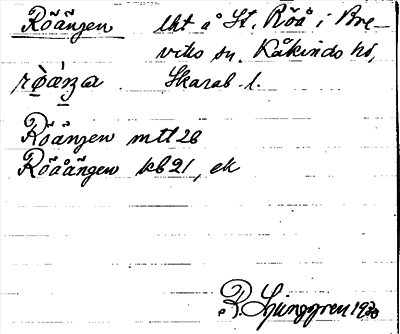 Röängen lht å St. Röå i Bre-
viks sn. Kåkinds hd,
Skarab. l.
Röängen mtl 26
Röåängen kb 21, ek
R. Ljunggren 1930